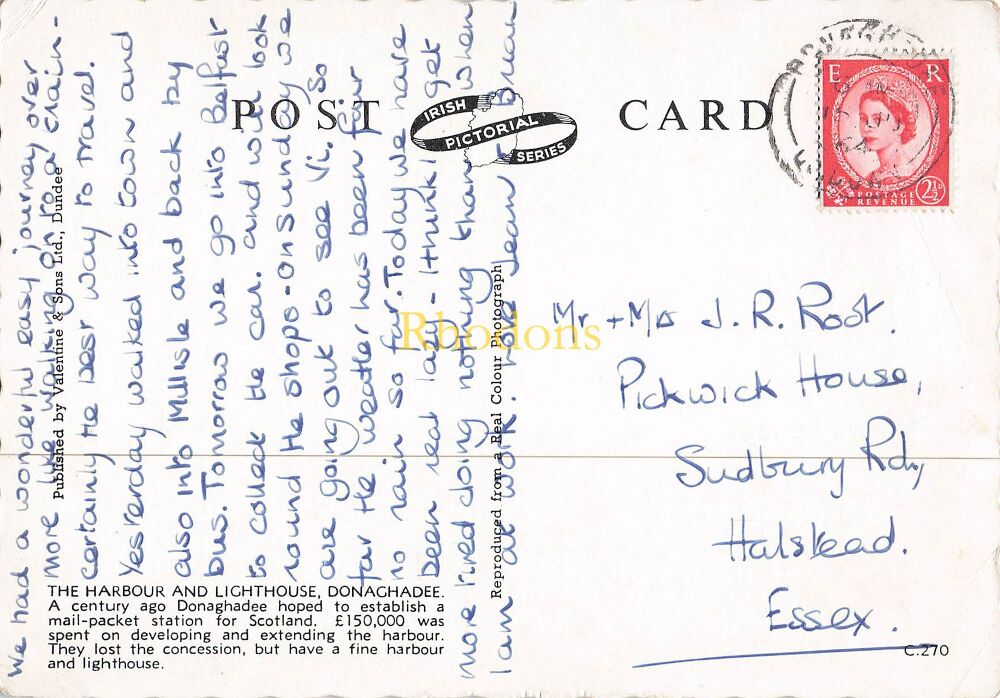 POST CARD
IRISH
PICTORIAL
SERIES
E R
POSTAGE
REVENUE
2½D
We had a wonderful easy journey over
more like walking on to a train -
certainly the best way to travel.
Yesterday walked into town and
also into Millisle and back by
bus. Tomorrow we go into Belfast
to collect the car. and will look
round the shops - on sunday we
are going out to see Vi. So
far the weather has been fair
no rain so far. Today we have
been real lazy - I think I get
more tired doing nothing than when
I am at work. Love Jean & Brian
Published by Valentine & Sons Ltd., Dundee
Reproduced from a Real Colour Photograph
Rhodons
Mr + Mrs J. R. Root.
Pickwick House,
Sudbury Rd.,
Halstead.
Essex.
THE HARBOUR AND LIGHTHOUSE, DONAGHADEE.
A century ago Donaghadee hoped to establish a
mail-packet station for Scotland. £150,000 was
spent on developing and extending the harbour.
They lost the concession, but have a fine harbour
and lighthouse.
C.270